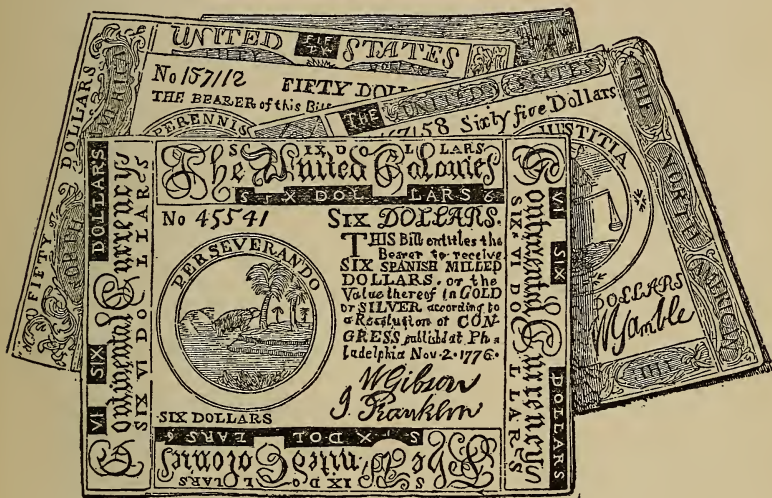 UNITED FIFTY STATES
FIFTY DOLLARS
No 157112 FIFTY DOL
THE BEARER of this Bil
PERENNIS
NORTH AMERICA
THE UNITED STATES
67158 Sixty five Dollars
JUSTITIA
THE NORTH AMERICA
DOLLARS
WGamble
SIX DOLLARS
The United Colonies
SIX DOLLARS 6
No 45541 SIX DOLLARS.
PERSEVERANDO
THIS Bill entitles the
Bearer to receive
SIX SPANISH MILLED
DOLLARS, or the
Value thereof in GOLD
or SILVER according to
a Resolution of CON-
GRESS published at Phi
ladelphia Nov. 2. 1776.
WGibson
J. Franklin
SIX DOLLARS
VI SIX DOLLARS
Continental Currency
SIX VI DOLLARS
VI SIX DOLLARS
Continental Currency
SIX VI DOLLARS
SIX DOLLARS 6
The United Colonies
SIX DOLLARS